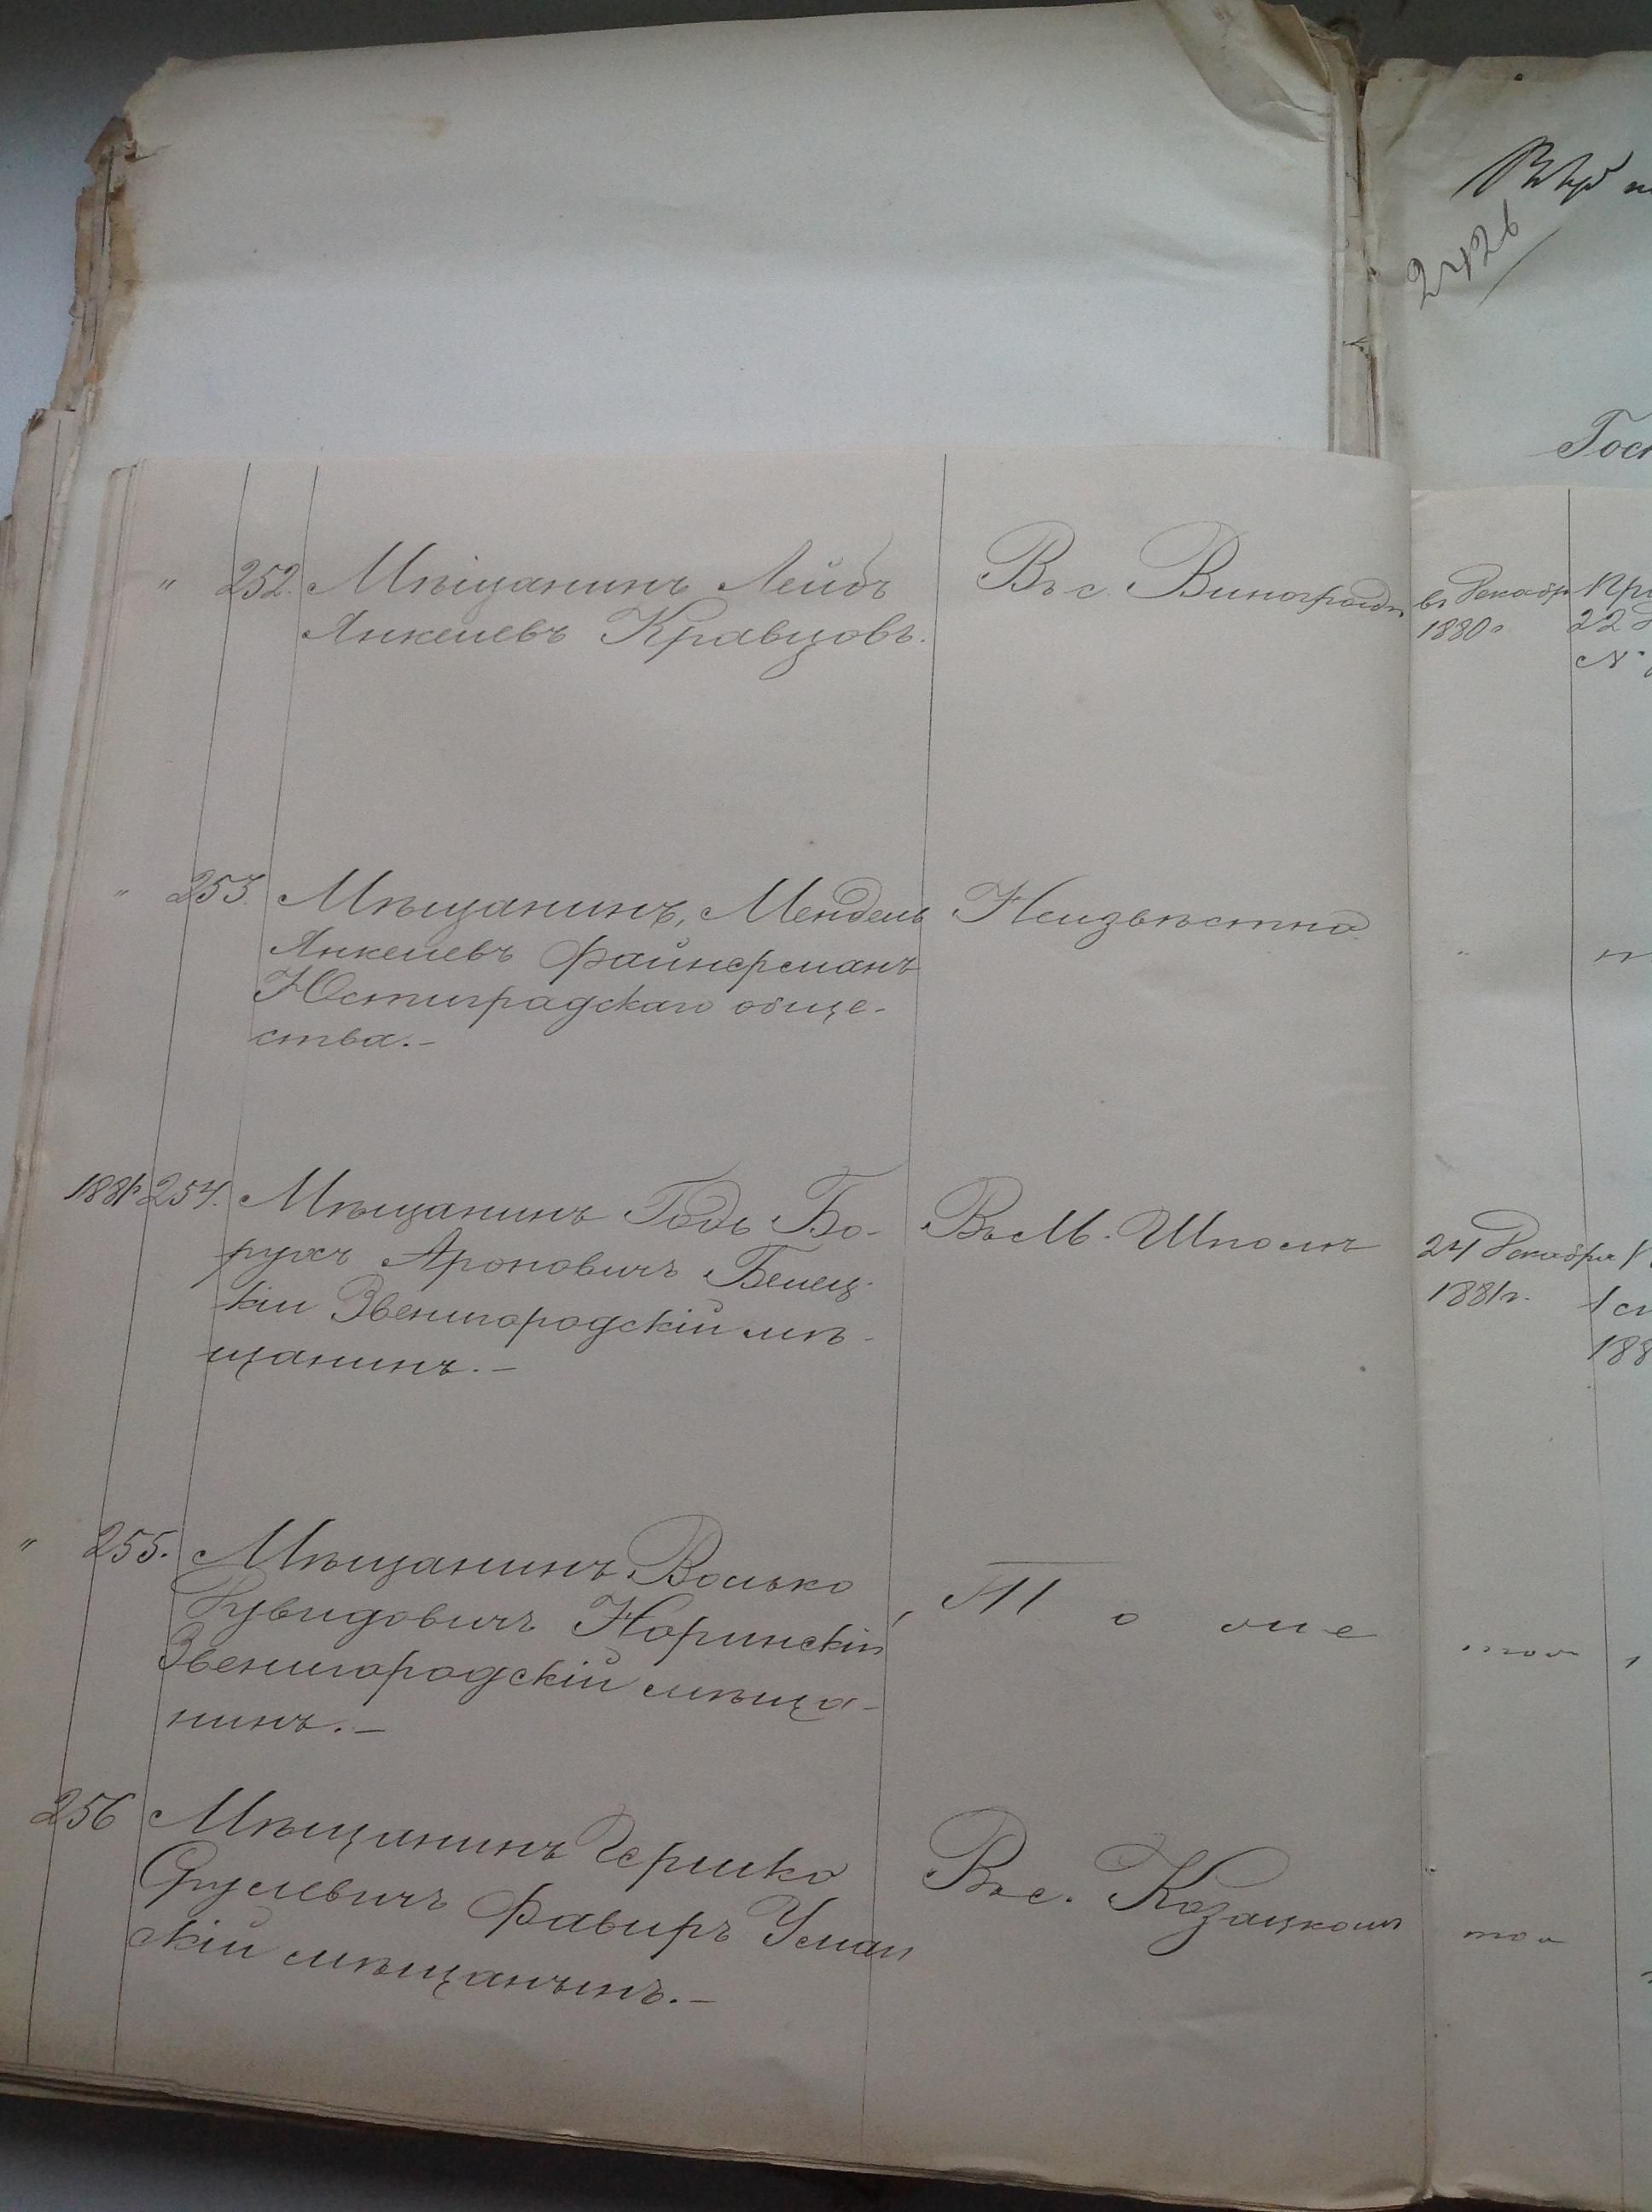 2426
Гос
" 252. Мѣщанинъ Лейбъ
Янкелевъ Кравцовъ.
Въ с. Виноградѣ
въ Декабр
1880 г
22
№
" 253. Мѣщанинъ, Мендель
Янкелевъ Файнерманъ
Юстиградскаго обще-
ства.-
Неизвѣстно
"
1881 г 254. Мѣщанинъ Годь Бо-
рухъ Ароновичъ Белец-
кій Звенигородскій мѣ-
щанинъ.-
Въ М. Шполѣ
24 Декабря
1881 г.
188
" 255. Мѣщанинъ Волько
Звенигородскій мѣща-
нинъ.-
То же
256 Мѣщанинъ Гершко
Срулевичъ Фавиръ Уман
скій мѣщанинъ.-
Въ с. Козацкомъ